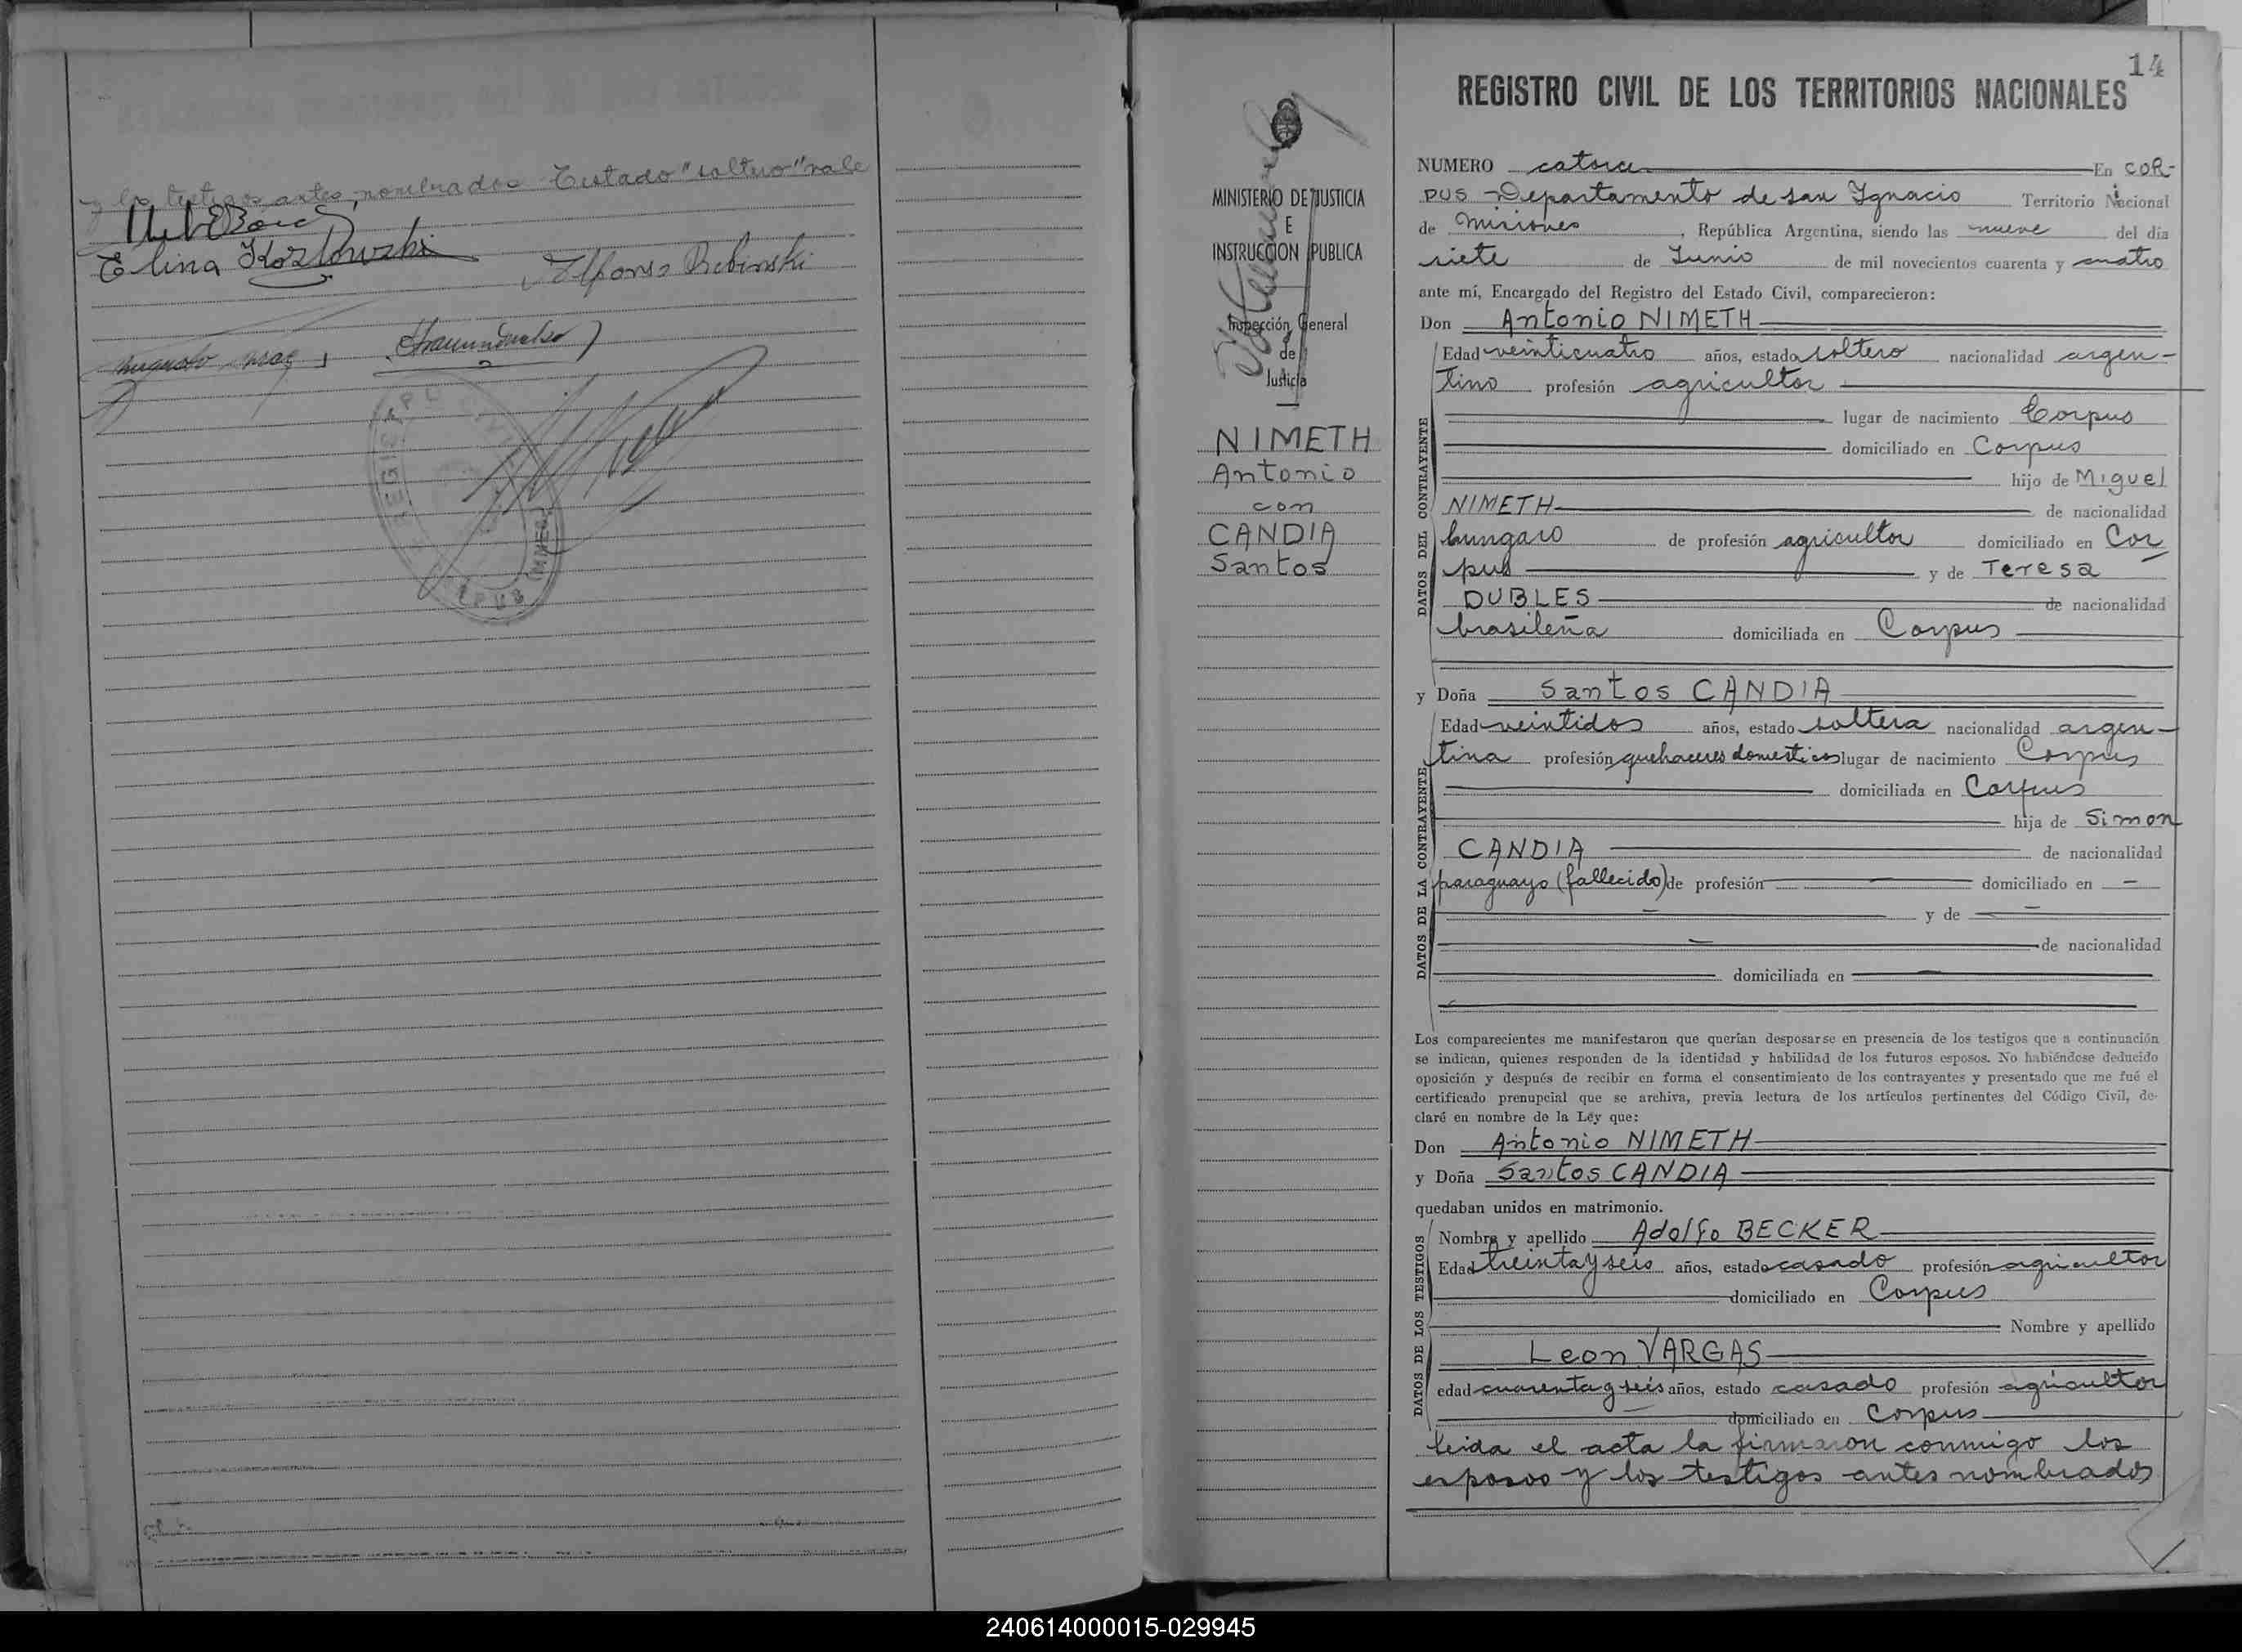 y los testigos antes nombrados Testado "soltero" vale
Elina Kozlowski
Alfonso Rebinski
REGIS
CIVIL
14
REGISTRO CIVIL DE LOS TERRITORIOS NACIONALES
MINISTERIO DE JUSTICIA
E
INSTRUCCION PUBLICA
Inspección General
de
Justicia
NIMETH
Antonio
con
CANDIA
Santos
NUMERO catorce En COR-
PUS - Departamento de San Ignacio Territorio Nacional
de Misiones, República Argentina, siendo las nueve del día
siete de Junio de mil novecientos cuarenta y cuatro
ante mí, Encargado del Registro del Estado Civil, comparecieron:
Don Antonio NIMETH
DATOS DEL CONTRAYENTE
Edad veinticuatro años, estado soltero nacionalidad argen-
tino profesión agricultor
lugar de nacimiento Corpus
domiciliado en Corpus
hijo de Miguel
NIMETH de nacionalidad
hungaro de profesión agricultor domiciliado en Cor
pus y de Teresa
DUBLES de nacionalidad
brasileña domiciliada en Corpus
y Doña Santos CANDIA
DATOS DE LA CONTRAYENTE
Edad veintidos años, estado soltera nacionalidad argen-
tina profesión quehaceres domesticos lugar de nacimiento Corpus
domiciliada en Corpus
hija de Simon
CANDIA de nacionalidad
paraguayo (fallecido) de profesión domiciliado en
y de
de nacionalidad
domiciliada en
Los comparecientes me manifestaron que querían desposarse en presencia de los testigos que a continuación
se indican, quienes responden de la identidad y habilidad de los futuros esposos. No habiéndose deducido
oposición y después de recibir en forma el consentimiento de los contrayentes y presentado que me fué el
certificado prenupcial que se archiva, previa lectura de los artículos pertinentes del Código Civil, de-
claré en nombre de la Ley que:
Don Antonio NIMETH
y Doña Santos CANDIA
quedaban unidos en matrimonio.
DATOS DE LOS TESTIGOS
Nombre y apellido Adolfo BECKER
Edad treinta y seis años, estado casado profesión agricultor
domiciliado en Corpus
Nombre y apellido
Leon VARGAS
edad cuarenta y seis años, estado casado profesión agricultor
domiciliado en Corpus
leida el acta la firmaron conmigo los
esposos y los testigos antes nombrados
240614000015-029945